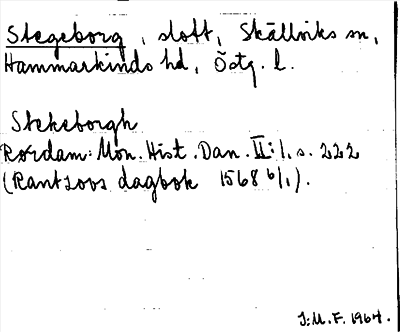 Stegeborg, slott, Skällviks sn,
Hammarkinds hd, Östg. l.
Stekeborgh
Rørdam: Mon. Hist. Dan. II:1, s. 222
(Rantzovs dagbok 1568 6/1).
I:M.F. 1964.